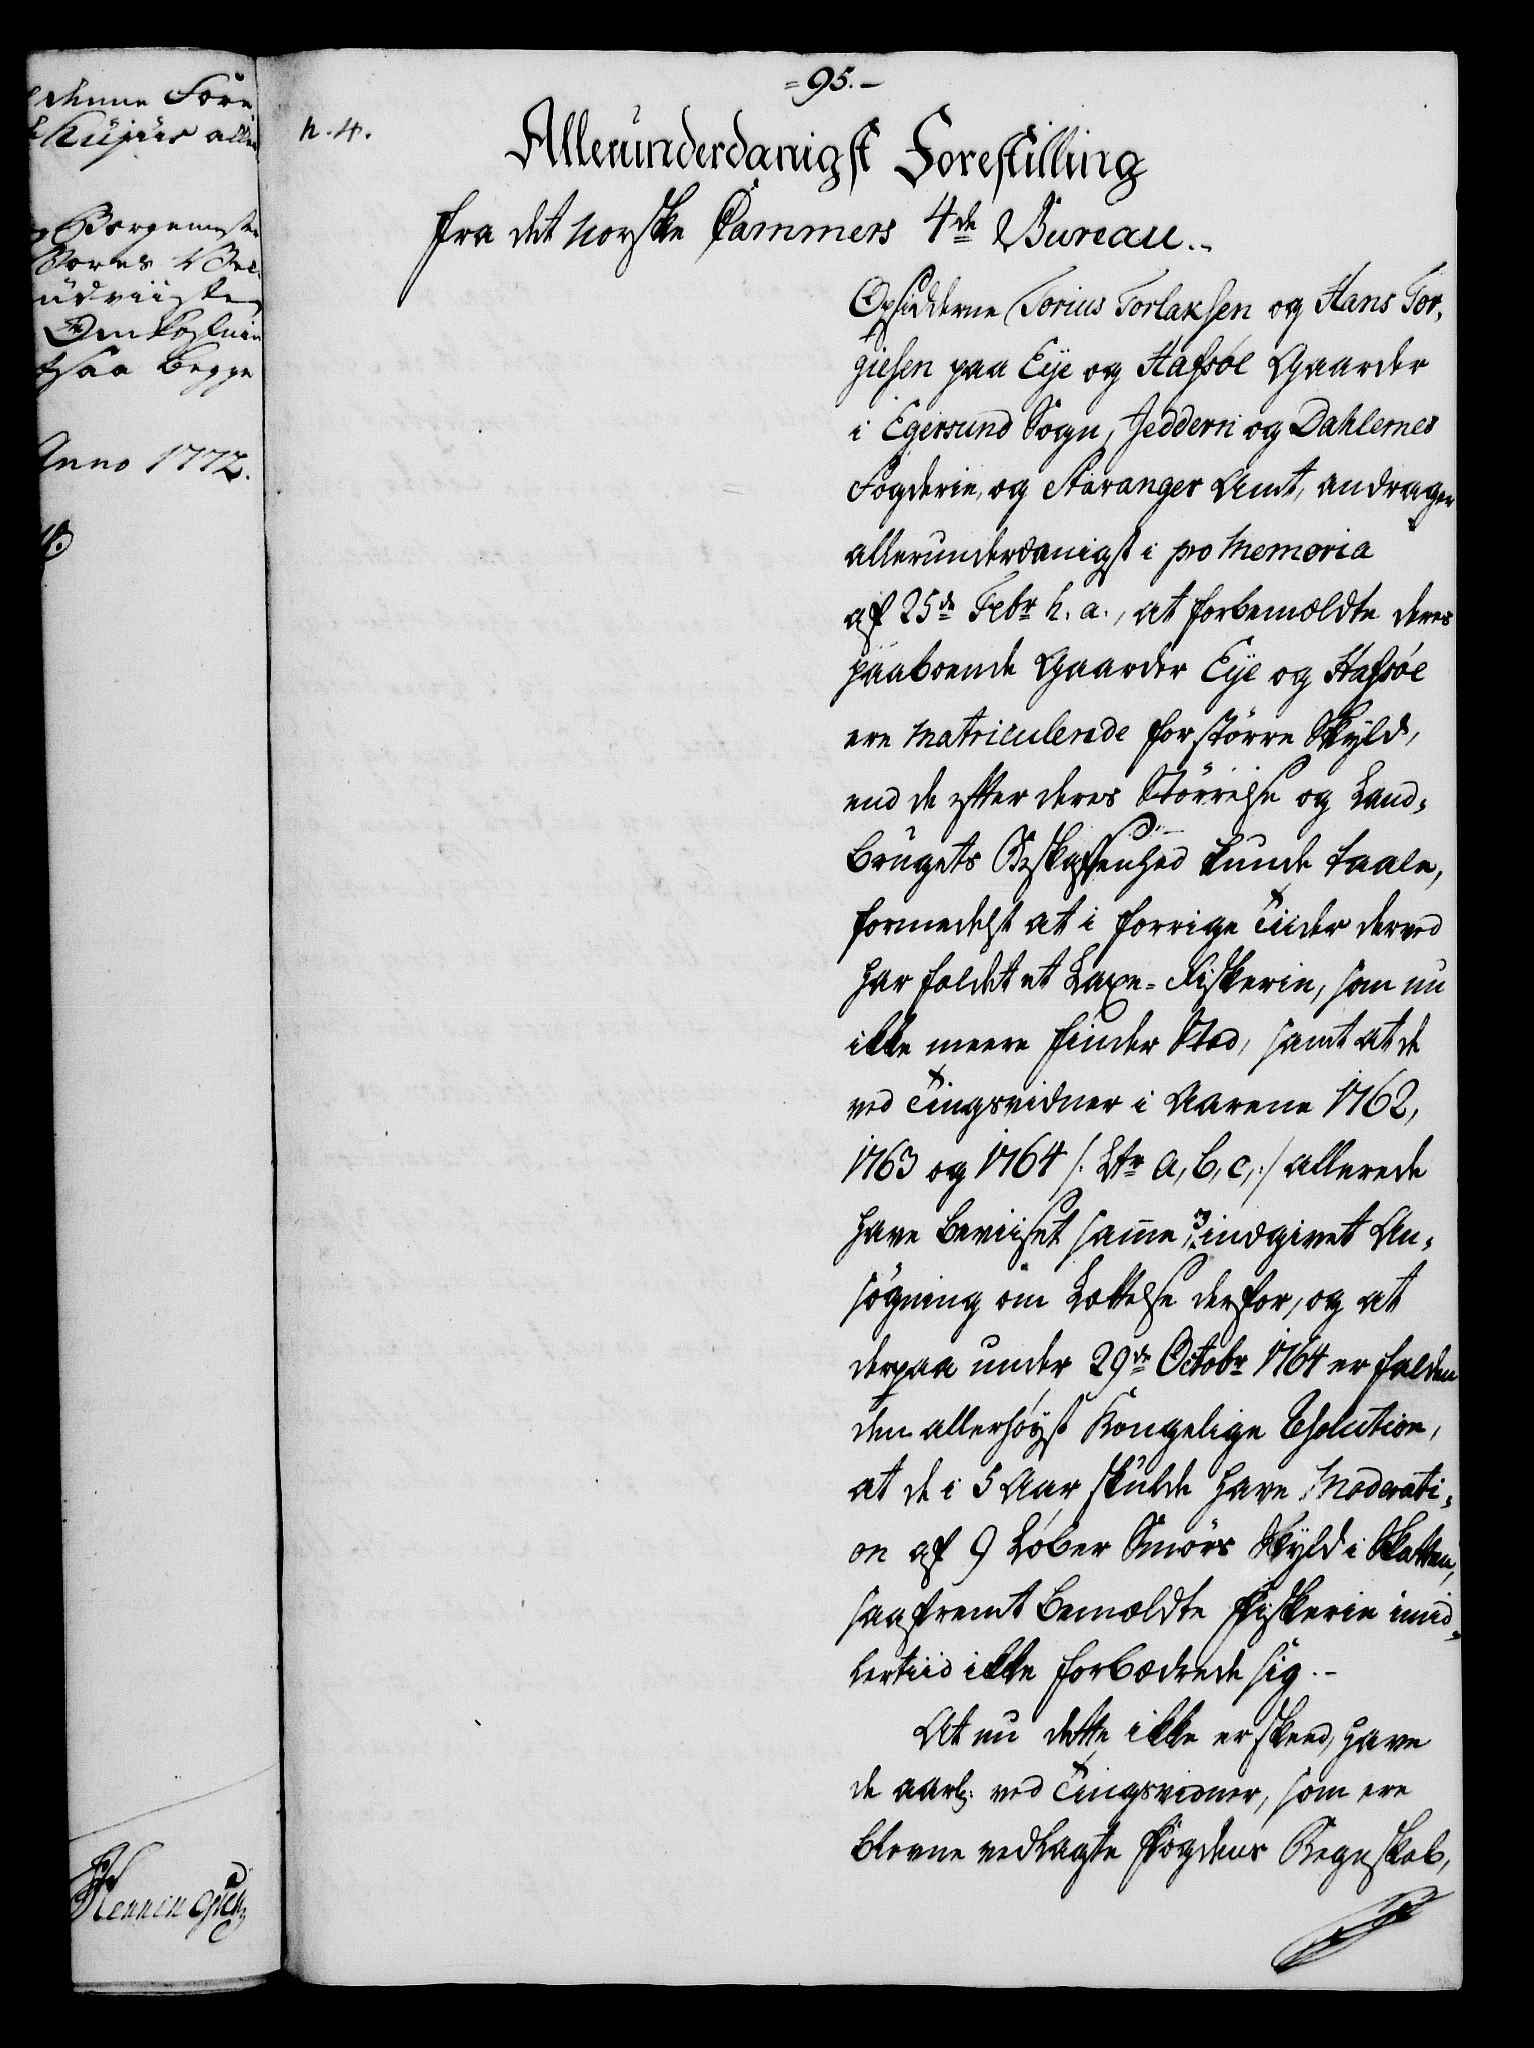 denne Fore
Kujus aller
Borgemester
Vores
udviiste
Omkostnin
saa begge
Anno 1772.
=95.-
n. 4.
Allerunderdanigst Forestilling
fra det norske Cammers 4de Bureau.-
Opsidderne Torius Torlaksen og Hans Tor,
giesen paa Eije og Hafsøe Gaarder
i Egersund Sogn, Jedderen og Dahlernes
Fogderie, og Stavanger Amt, andrager
allerunderdanigst i pro Memoria
af 25de Febr h. a., at forbemældte deres
paaboende Gaarder Eye og Hafsøe
ere Matriculerede for större Skyld,
end de efter deres Störrelse og Land,
brugets Beskaffenhed kunde taale,
formedelst at i forrige Tiider derved
har faldet et Laxe-Fiskerie, som nu
ikke meere finder Sted, samt at de
ved Tingsvidner i Aarene 1762,
1763 og 1764 /: Ltr a, b, c, :/ allerede
have beviiset samme, indgivet An,
sögning om Lettelse derfor, og at
derpaa under 29de Octobr 1764 er falden
den allerhöyst Kongelige Resolution,
at de i 5 Aar skulde have Moderati,
on af 9 Løber Smörs Skyld i Skatten,
saafremt bemældte Fiskerie imid,
lertiid ikke forbædrede sig.-
At nu dette ikke er skeed, have
de aarl: ved Tingsvidner, som ere
blevne vedlagte Fogdens Regnskab,